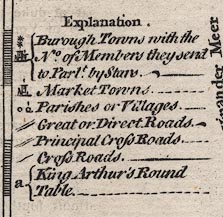 Explanation.
Burough Towns with the
No. of Members they send
to Parl. by Stars.
Market Towns
Parishes or Villages.
Great or Direct Roads.
Principal Cross Roads.
Cross Roads.
a. King Arthur's Round
Table.
Meer